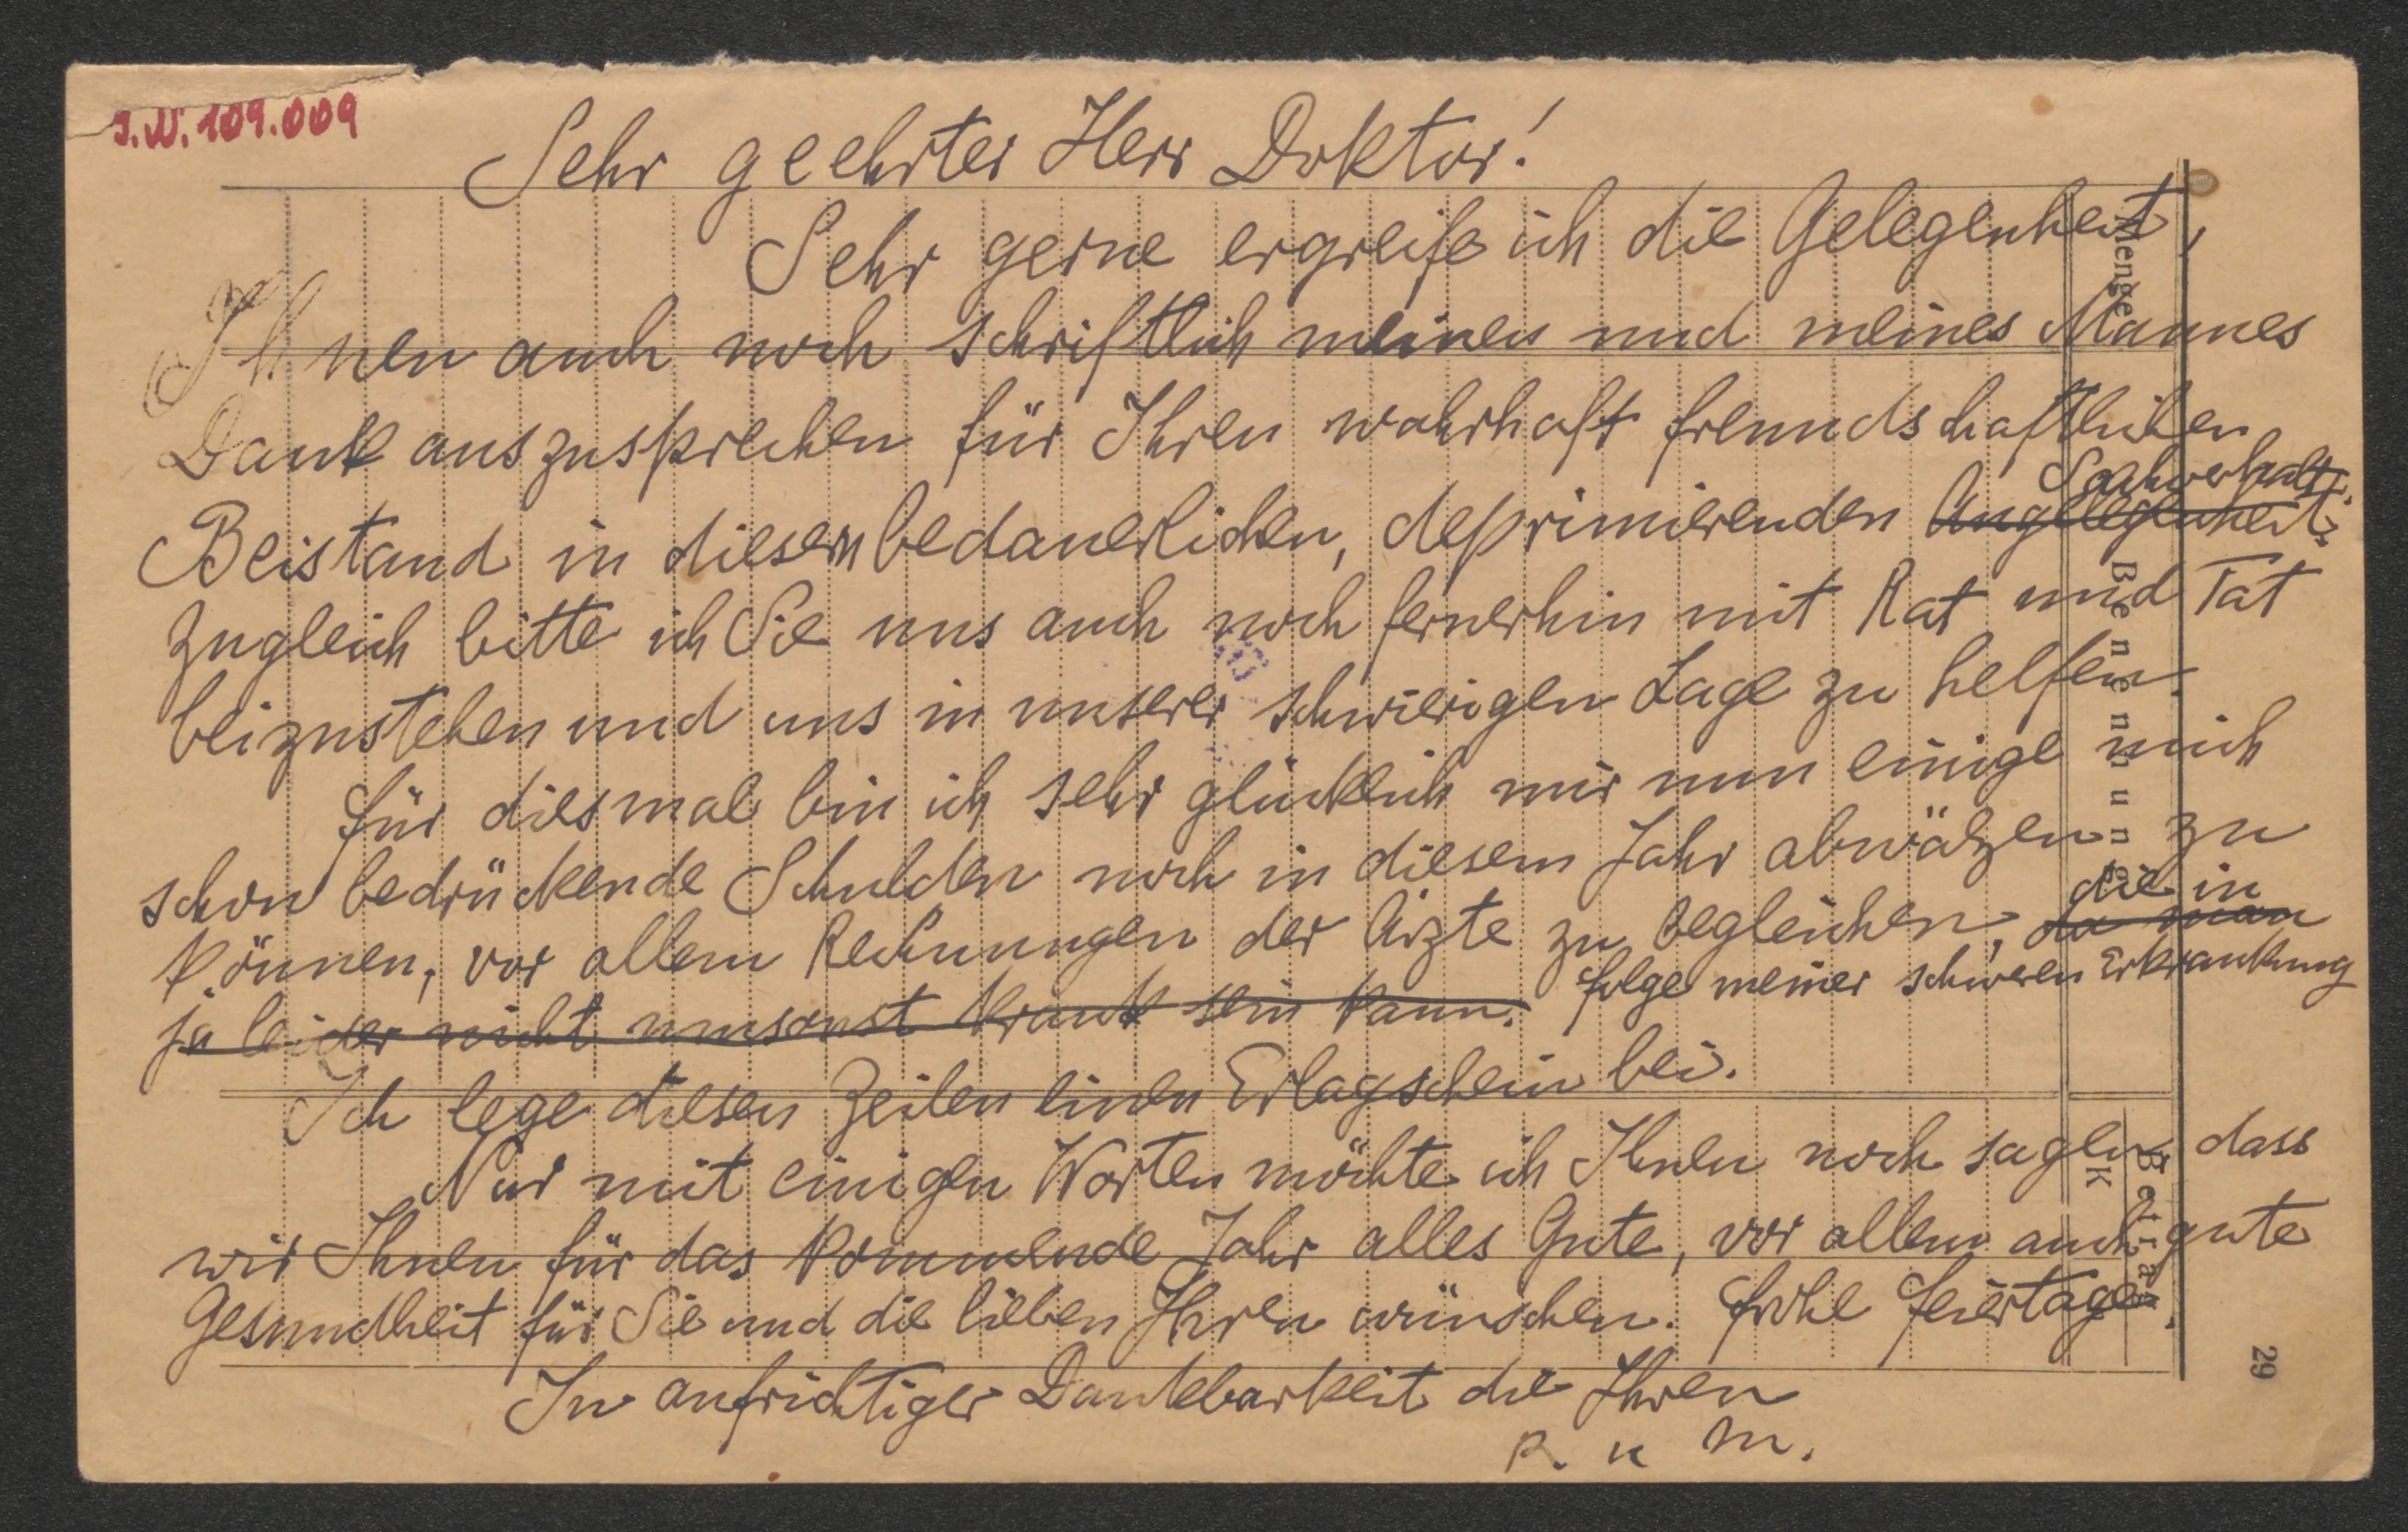 J.N. 109.009
Sehr geehrter Herr Doktor!
Sehr gerne ergreife ich die Gelegenheit,
Ihnen auch noch schriftlich meinen und meines Mannes
Dank auszusprechen für Ihren wahrhaft freundschaftlichen
Sachverhalt.
Beistand in diesem bedauerlichen, deprimierenden Angelegenheit.
Zugleich bitte ich Sie uns auch noch fernerhin mit Rat und Tat
beizustehen und uns in unserer schwierigen Lage zu helfen.
Für diesmal bin ich sehr glücklich mir nun einige mich
schon bedrückende Schulden noch in diesem Jahr abwälzen zu
die in
können, vor allem Rechnungen der Ärzte zu begleichen, da man
folge meiner schweren Erkrankung
ja leider nicht umsonst krank sein kann.
Ich lege diesen Zeilen einen Erlagschein bei.
Nur mit einigen Worten möchte ich Ihnen noch sagen, dass
wir Ihnen für das kommende Jahr alles Gute, vor allem auch gute
Gesundheit für Sie und die lieben Ihren wünschen. Frohe Feiertage.
In aufrichtiger Dankbarkeit die Ihren
R. u M.
Menge
Benennung
Betrag
K
29